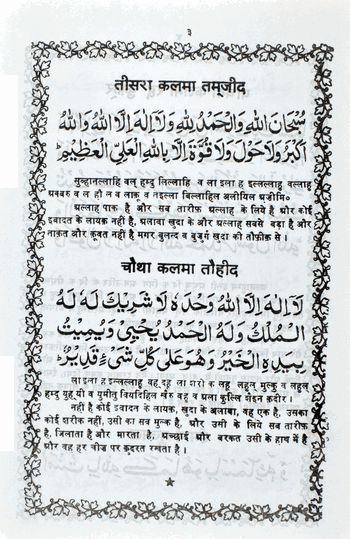 ३
तीसरा कलमा तमजीद
سُبْحَانَ اللهِ وَالْحَمْدُ لِلّٰهِ وَلَآ اِلٰهَ اِلَّا اللهُ وَاللهُ
اَكْبَرُ وَلَا حَوْلَ وَلَا قُوَّةَ اِلَّا بِاللهِ الْعَلِيِّ الْعَظِيْمِ
सुब्हानल्लाहि वल् हम्दु लिल्लाहि व ला इला ह इल्लल्लाहु वल्लाहु
अक्बर व ल हौ ल व लाक़ू व त इल्ला बिल्लाहिल अलीयिल अज़ीमि०
अल्लाह पाक है और सब तारीफ़ अल्लाह के लिये है और कोई
इबादत के लायक़ नहीं है, अलावा ख़ुदा के और अल्लाह सबसे बड़ा है और
ताक़त और क़ूवत नहीं है मगर बुलन्द व बुज़ुर्ग ख़ुदा की तौफ़ीक़ से ।
चौथा कलमा तौहीद
لَآ اِلٰهَ اِلَّا اللهُ وَحْدَهٗ لَا شَرِيْكَ لَهٗ لَهُ
الْمُلْكُ وَلَهُ الْحَمْدُ يُحْيِيْ وَيُمِيْتُ
بِيَدِهِ الْخَيْرُ وَهُوَ عَلٰى كُلِّ شَيْءٍ قَدِيْرٌ
ला इला ह इल्लल्लाहु वह् दहू ला शरी क लहू लहुल् मुल्कु व लहुल्
हम्दु युह् यी व युमीतु बियदिहिल् ख़ैरु वहु व अला कुल्लि शैइन क़दीर ।
नहीं है कोई इबादत के लायक़, ख़ुदा के अलावा, वह एक है, उसका
कोई शरीक नहीं, उसी का सब मुल्क है, और उसी के लिये सब तारीफ़
है, जिलाता है और मारता है, अच्छाई और बरकत उसी के हाथ में है
और वह हर चीज़ पर क़ुदरत रखता है ।